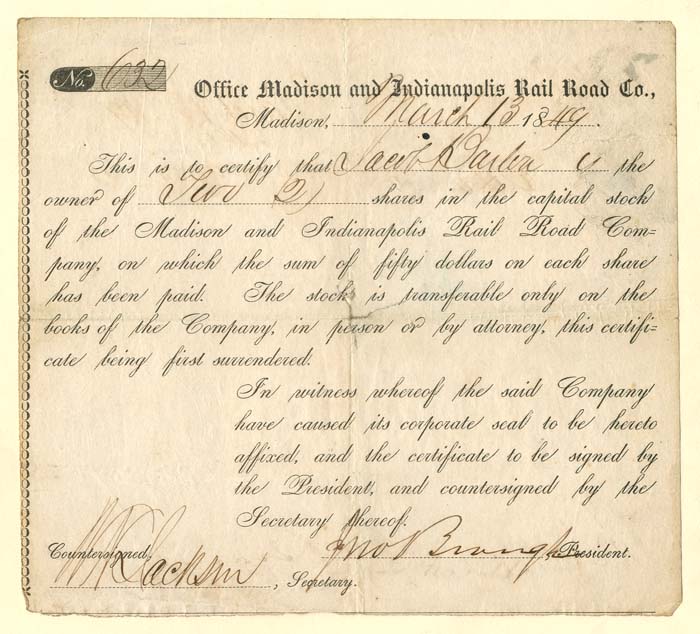 No. 632
Office Madison and Indianapolis Rail Road Co.,
Madison, March 13 1849.
This is to certify that Jacob is the
owner of Two (2) shares in the capital stock
of the Madison and Indianapolis Rail Road Com-
pany, on which the sum of fifty dollars on each share
has been paid. The stock is transferable only on the
books of the Company, in person or by attorney, this certifi-
cate being first surrendered.
In witness whereof the said Company
have caused its corporate seal to be hereto
affixed, and the certificate to be signed by
the President, and countersigned by the
Secretary thereof.
Countersigned. Jno Brough President.
Jackson, Secretary.